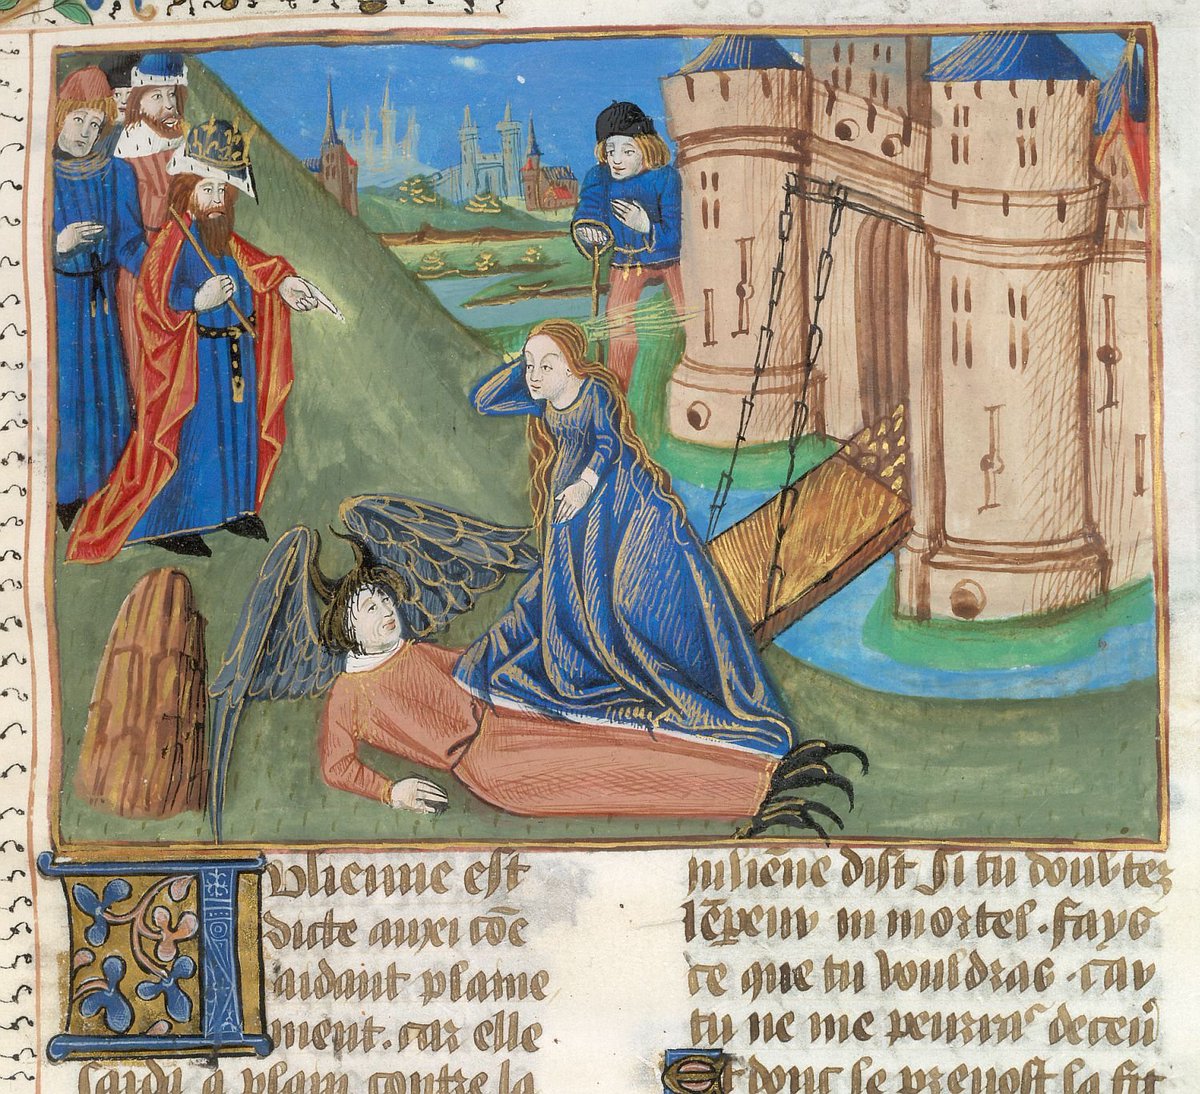 Iulienne est
dicte auxi cōe
aidant plaine
ment. car elle
saida a plain contre la
iuliēne dist Si tu doubtez
lēpeur mmortel. fays
ce que tu vouldras. car
tu ne me pourras deceu
Et donc le prevost la fit